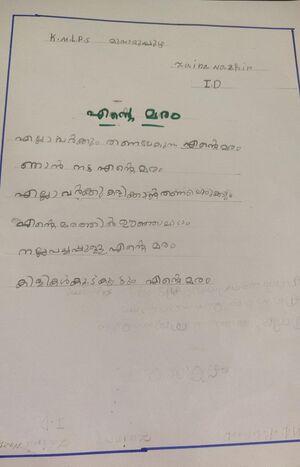 K.M.L.P.S
Zaiba Nazhin
I.D
എന്റെ മരം
എല്ലാവർക്കും തണലേകുന്ന എന്റെ മരം
ഞാൻ നട്ട എന്റെ മരം
എല്ലാവർക്കു തണലേകും
എന്റെ മരത്തിൽ ഊഞ്ഞലിടാം
നല്ല പച്ചപ്പുള്ള എന്റെ മരം
കിളികൾ കൂട്കൂടും എന്റെ മരം